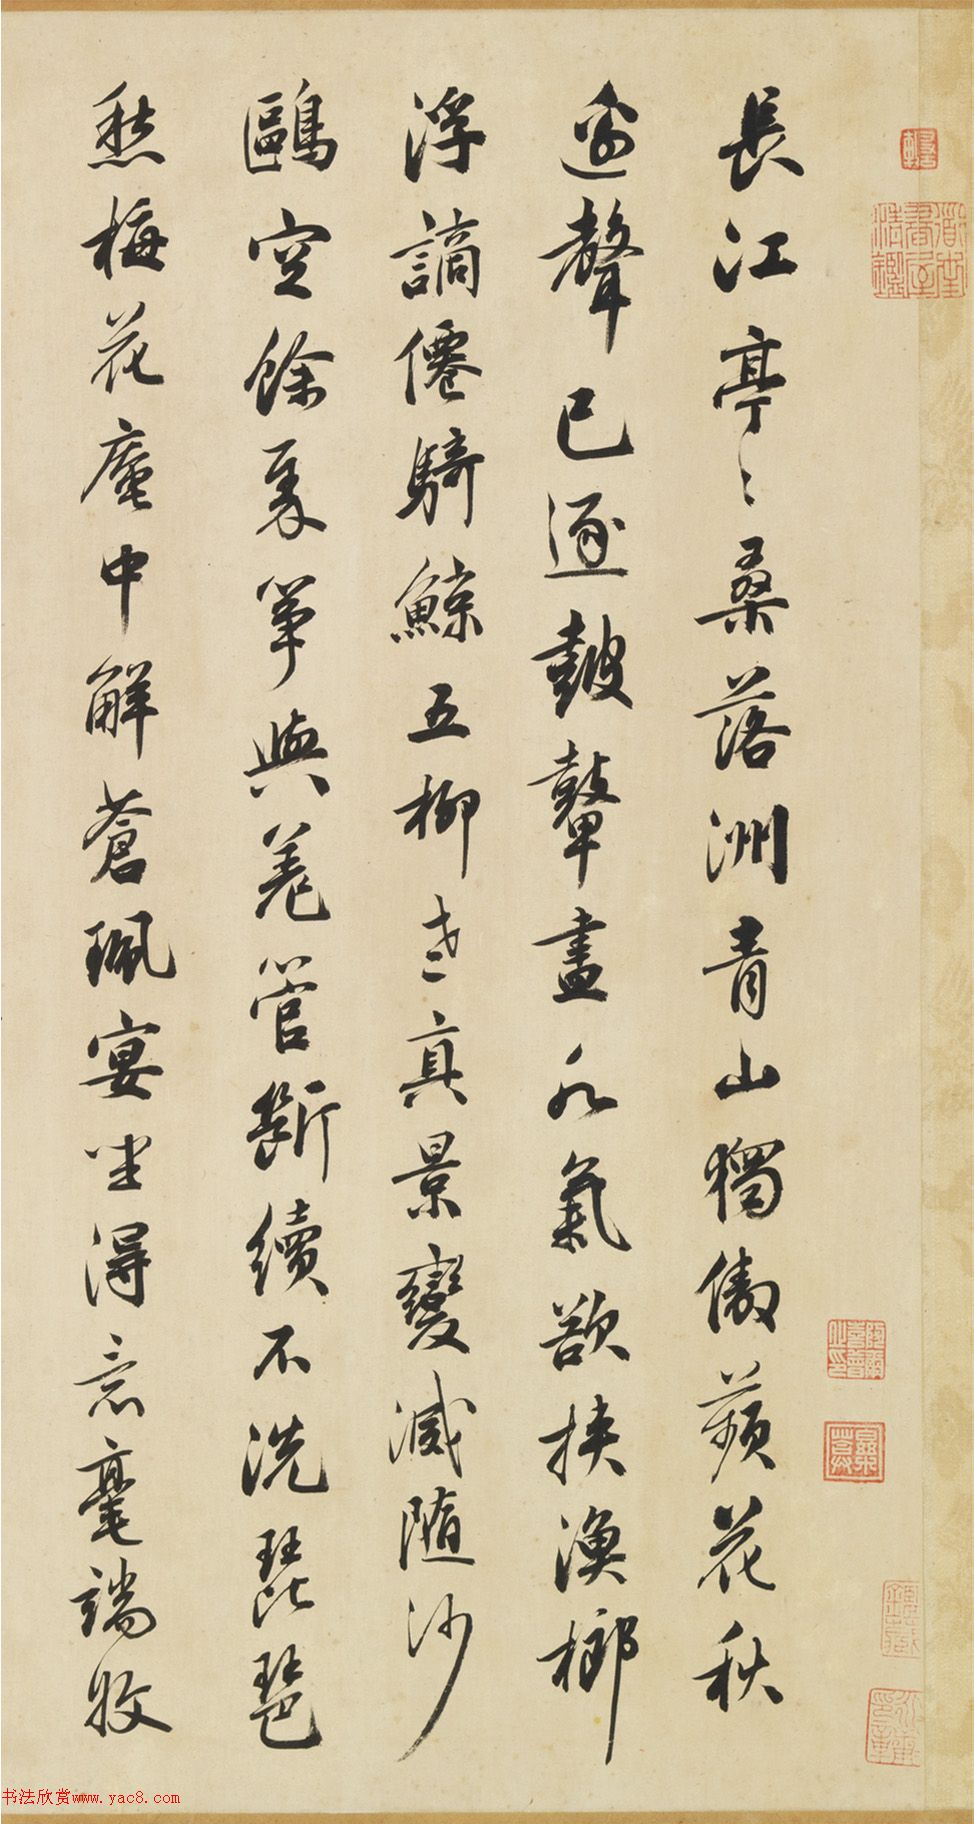 長江亭〻桑落洲青山獨傲蘋花秋
邊聲已逐鼓鼙盡水氣欲挾漁榔
浮謫僊騎鯨五柳老真景變滅隨沙
鷗空餘秦箏與羌管斷續不洗琵琶
愁梅花庵中解蒼珮宴坐得意毫端收
书法欣赏www.yac8.com